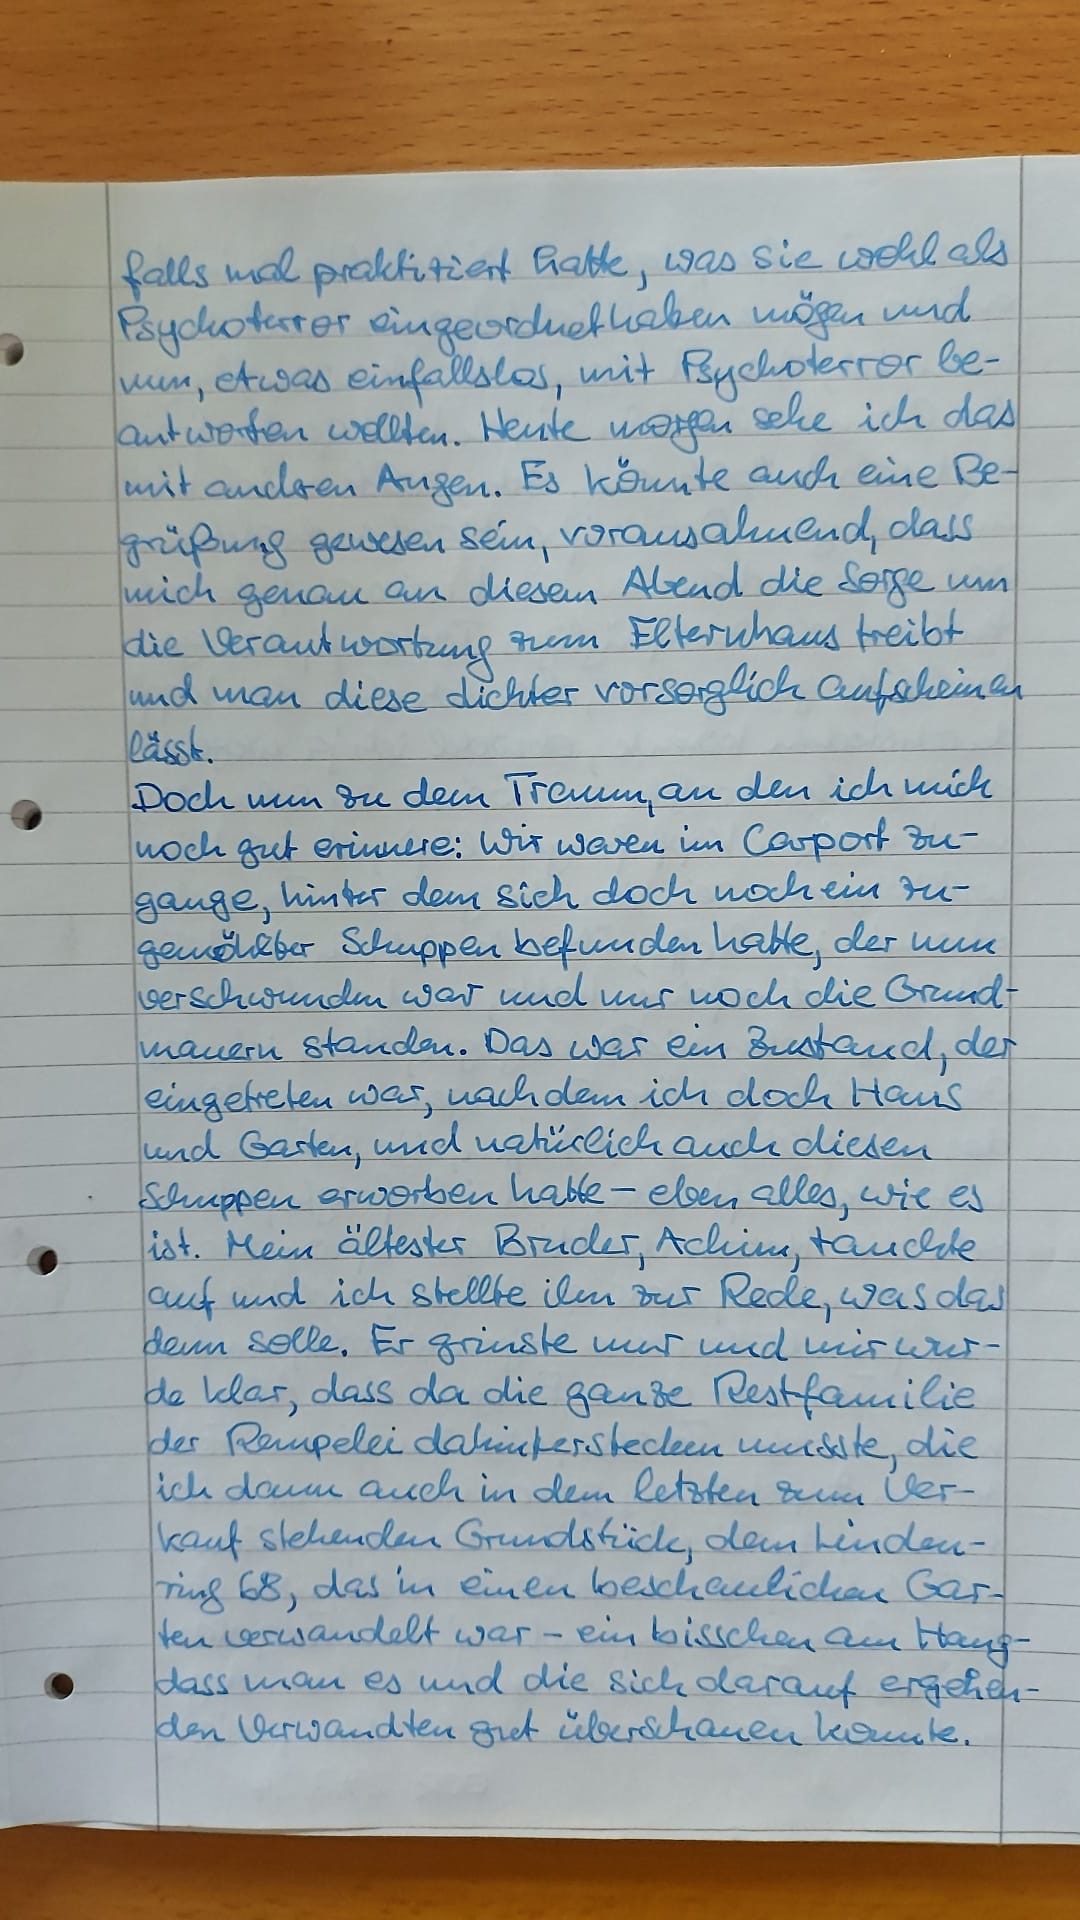 falls mal praktiziert hatte, was sie wohl als
Psychoterror eingeordnet haben mögen und
nun, etwas einfallslos, mit Psychoterror be-
antworten wollten. Heute morgen sehe ich das
mit anderen Augen. Es könnte auch eine Be-
grüßung gewesen sein, vorausahnend, dass
mich genau an diesem Abend die Sorge um
die Verantwortung zum Elternhaus treibt
und man diese Lichter vorsorglich aufscheinen
lässt.
Doch nun zu dem Traum, an den ich mich
noch gut erinnere: Wir waren im Carport zu-
gange, hinter dem sich doch noch ein zu-
Schuppen befunden hatte, der nun
verschwunden war und nur noch die Grund-
mauern standen. Das war ein Zustand, der
eingetreten war, nachdem ich doch Haus
und Garten, und natürlich auch diesen
Schuppen erworben hatte – eben alles, wie es
ist. Mein ältester Bruder, Achim, tauchte
auf und ich stellte ihn zur Rede, was das
denn solle. Er grinste nur und mir wur-
de klar, dass da die ganze Restfamilie
der Rempelei dahinterstecken musste, die
ich dann auch in dem letzten zum Ver-
kauf stehenden Grundstück, dem Linden-
ring 68, das in einen beschaulichen Gar-
ten verwandelt war – ein bisschen am Hang –
dass man es und die sich darauf ergehen-
den Verwandten gut überschauen konnte.